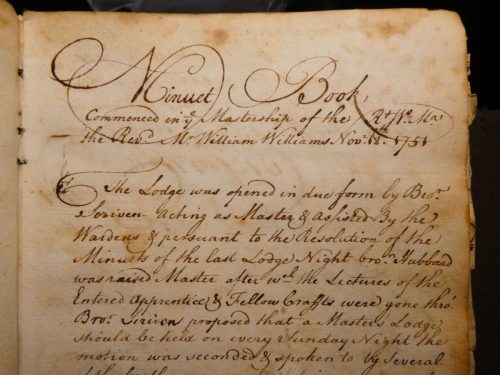 Minuet Book,
Commenced in ye Mastership of the Rt. Wl. Mr
the Revd. Mr William Williams Novr. 18th. 1751
The Lodge was opened in due form by Bror.
Scriven Acting as Master & assisted By the
Wardens & persuant to the Resolution of the
Minuets of the last Lodge Night bror. Hubbard
was raised Master after wch. the Lectures of the
Entered Apprentice & Fellow Craffts were gone thro.
Bror. Scriven proposed that a Masters Lodge
should be held on every Sunday Night the
motion was seconded & spoken to by several